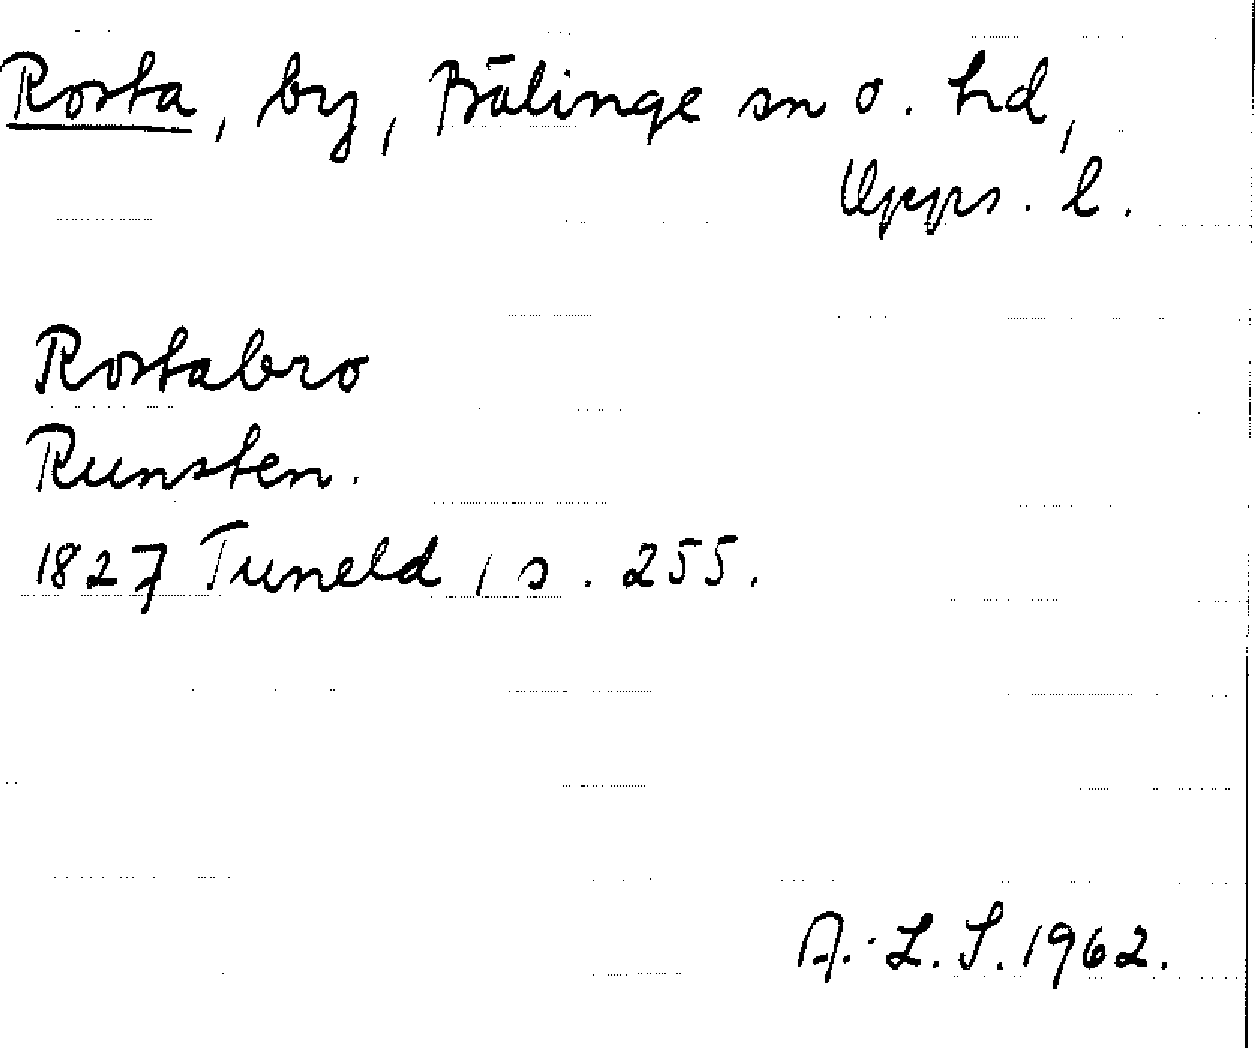 Rosta, by, Bälinge sn o. hd,
Upps. l.
Rostabro
Runsten.
1827 Tuneld, s. 255.
A.-L. S. 1962.